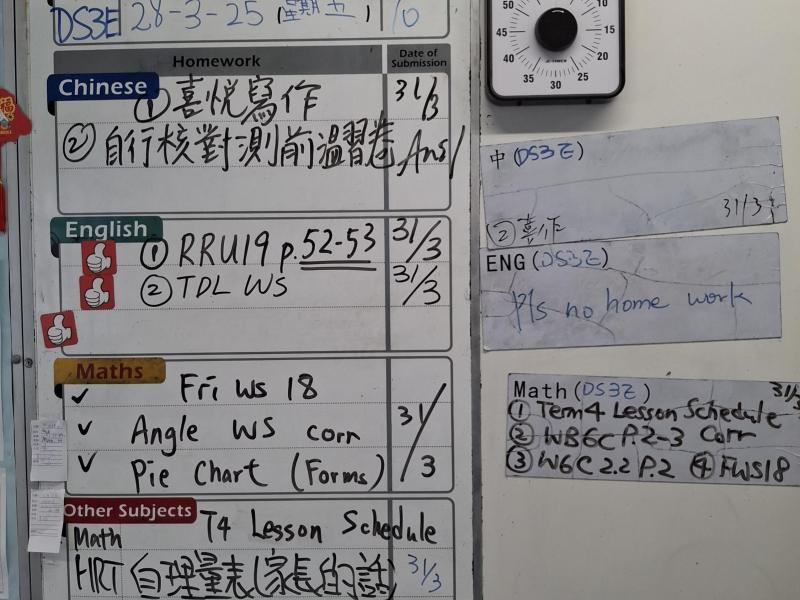 DS3E 28-3-25 (星期五) 10
Homework
Date of Submission
Chinese
① 喜悅寫作 31/3
② 自行核對測前溫習卷 Ans
English
① RRU19 p.52-53 31/3
② TDL WS 31/3
Maths
✓ Fri WS 18
✓ Angle WS corr 31/3
✓ Pie Chart (Forms)
Other Subjects
Math T4 Lesson Schedule
HRT 自理量表(家長的話) 31/3
50 10
45 15
40 20
35 30 25
中 (DS3E)
31/3
② 喜作
ENG (DS3E)
Pls no home work
Math (DS3E)
① Term 4 Lesson Schedule
② WB6C P.2-3 Corr
③ W6C 2.2 P.2 ④ FWS18